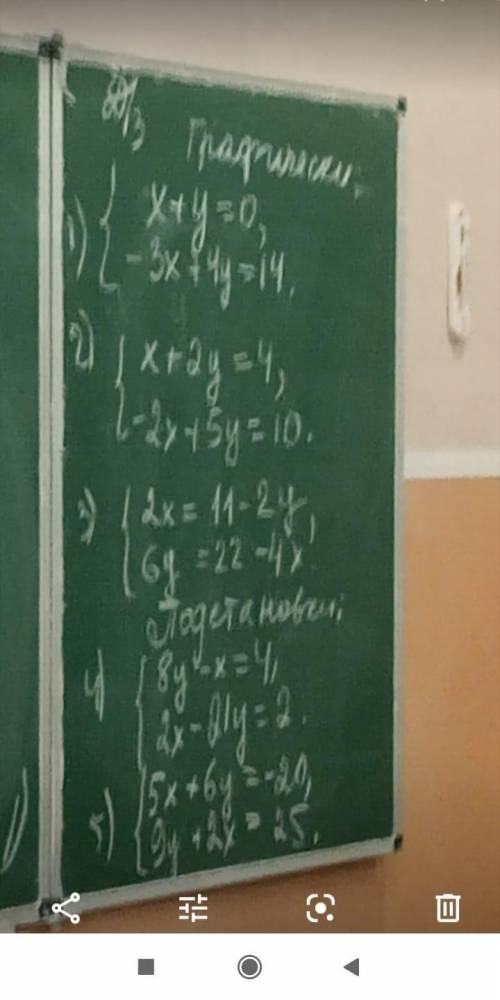 Графически:
1) { x+y=0,
-3x+4y=14.
2) { x+2y=4,
-2x+5y=10.
3) { 2x=11-2y,
6y=22-4x.
Подстановки:
4) { 8y-x=4,
2x-21y=2.
5) { 5x+6y=-20,
9y+2x=25.